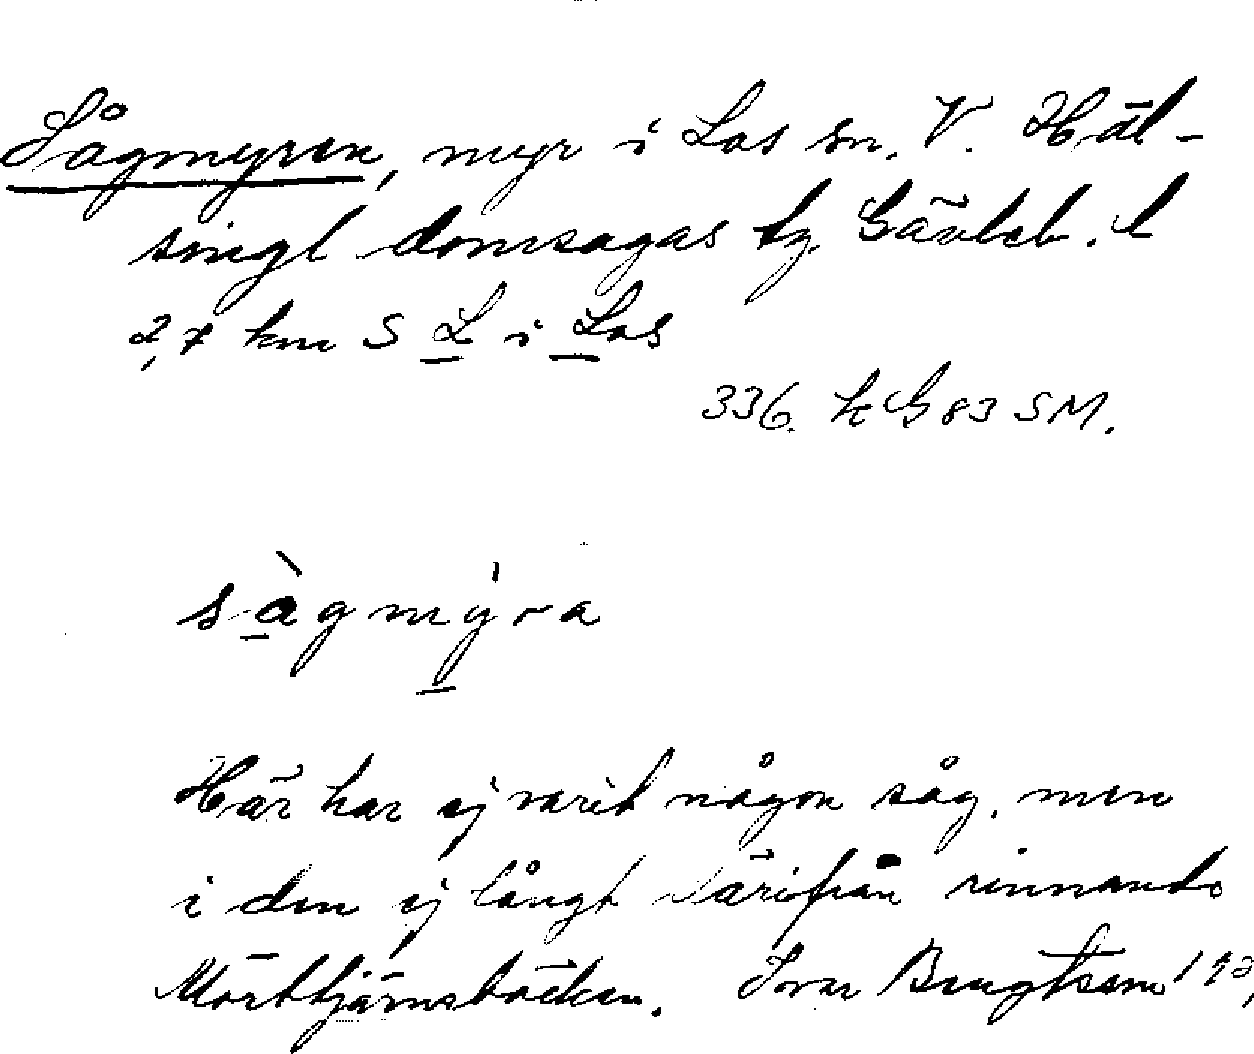 Sågmyren, myr i Los sn. V. Häl-
singl domsagas tg. Gävleb. l
2,7 km S L i Los
336. k G 83 SM.
sàgmýra
Här har ej varit någon såg, men
i den ej långt därifrån rinnande
Mörttjärnsbäcken. Ivar Bengtsson